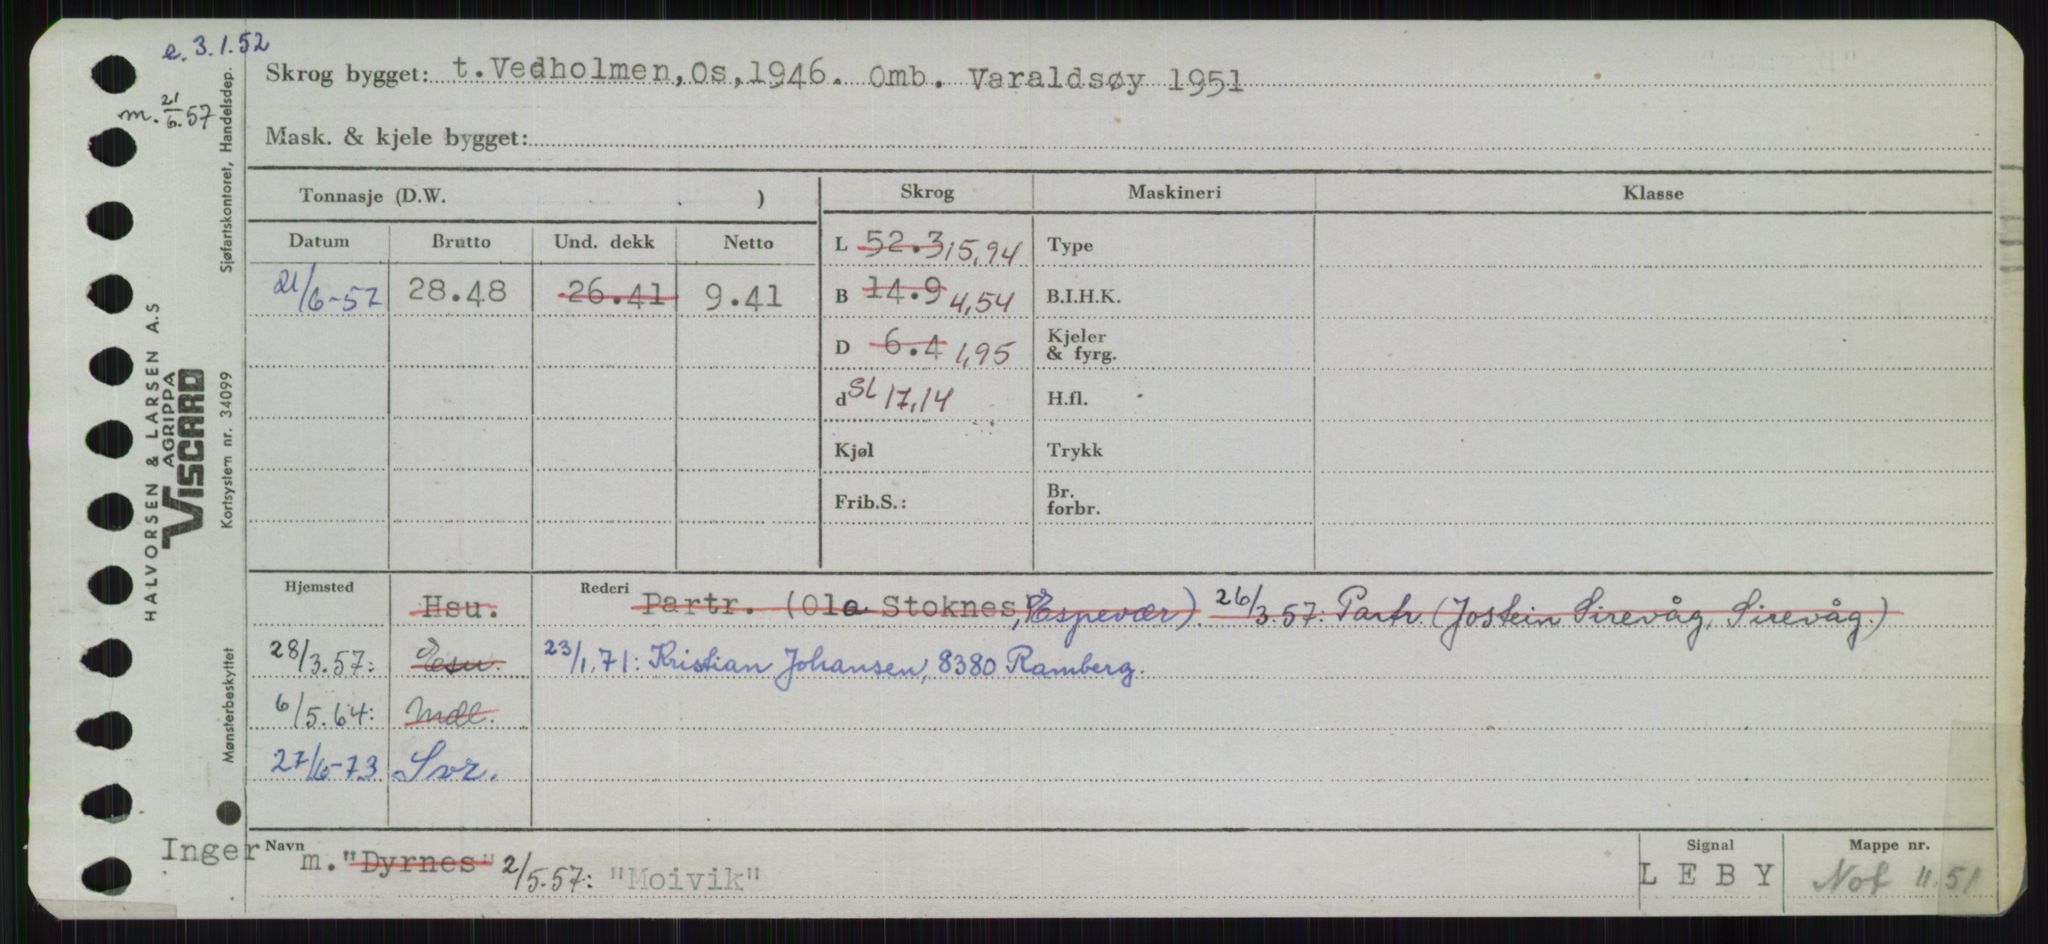 e. 3.1.52
m. 21/6.57
Skrog bygget: t.Vedholmen,Os,1946. Omb. Varaldsøy 1951
Mask. & kjele bygget:
Tonnasje (D.W. ) Skrog Maskineri Klasse
Datum Brutto Und. dekk Netto
21/6-57 28.48 26.41 9.41
L 52.3 15,94 Type
B 14.9 4,54 B.I.H.K.
D 6.4 1,95 Kjeler & fyrg.
d SL 17,14 H.fl.
Kjøl Trykk
Frib.S.: Br. forbr.
Hjemsted Rederi
Hsu. Partr. (Ola Stoknes, Espevær) 26/3.57: Partr. (Jostein Sirevåg, Sirevåg.)
28/3.57: Esu. 23/1.71: Kristian Johansen, 8380 Ramberg.
6/5.64: Mdl.
27/6-73 Svr.
Inger Navn m. "Dyrnes" 2/5.57: "Moivik"
Signal LEBY
Mappe nr. Not 11.51
HALVORSEN & LARSEN A.S
AGRIPPA
VISCARD
Sjøfartskontoret, Handelsdep.
Kortsystem nr. 34099
Mønsterbeskyttet